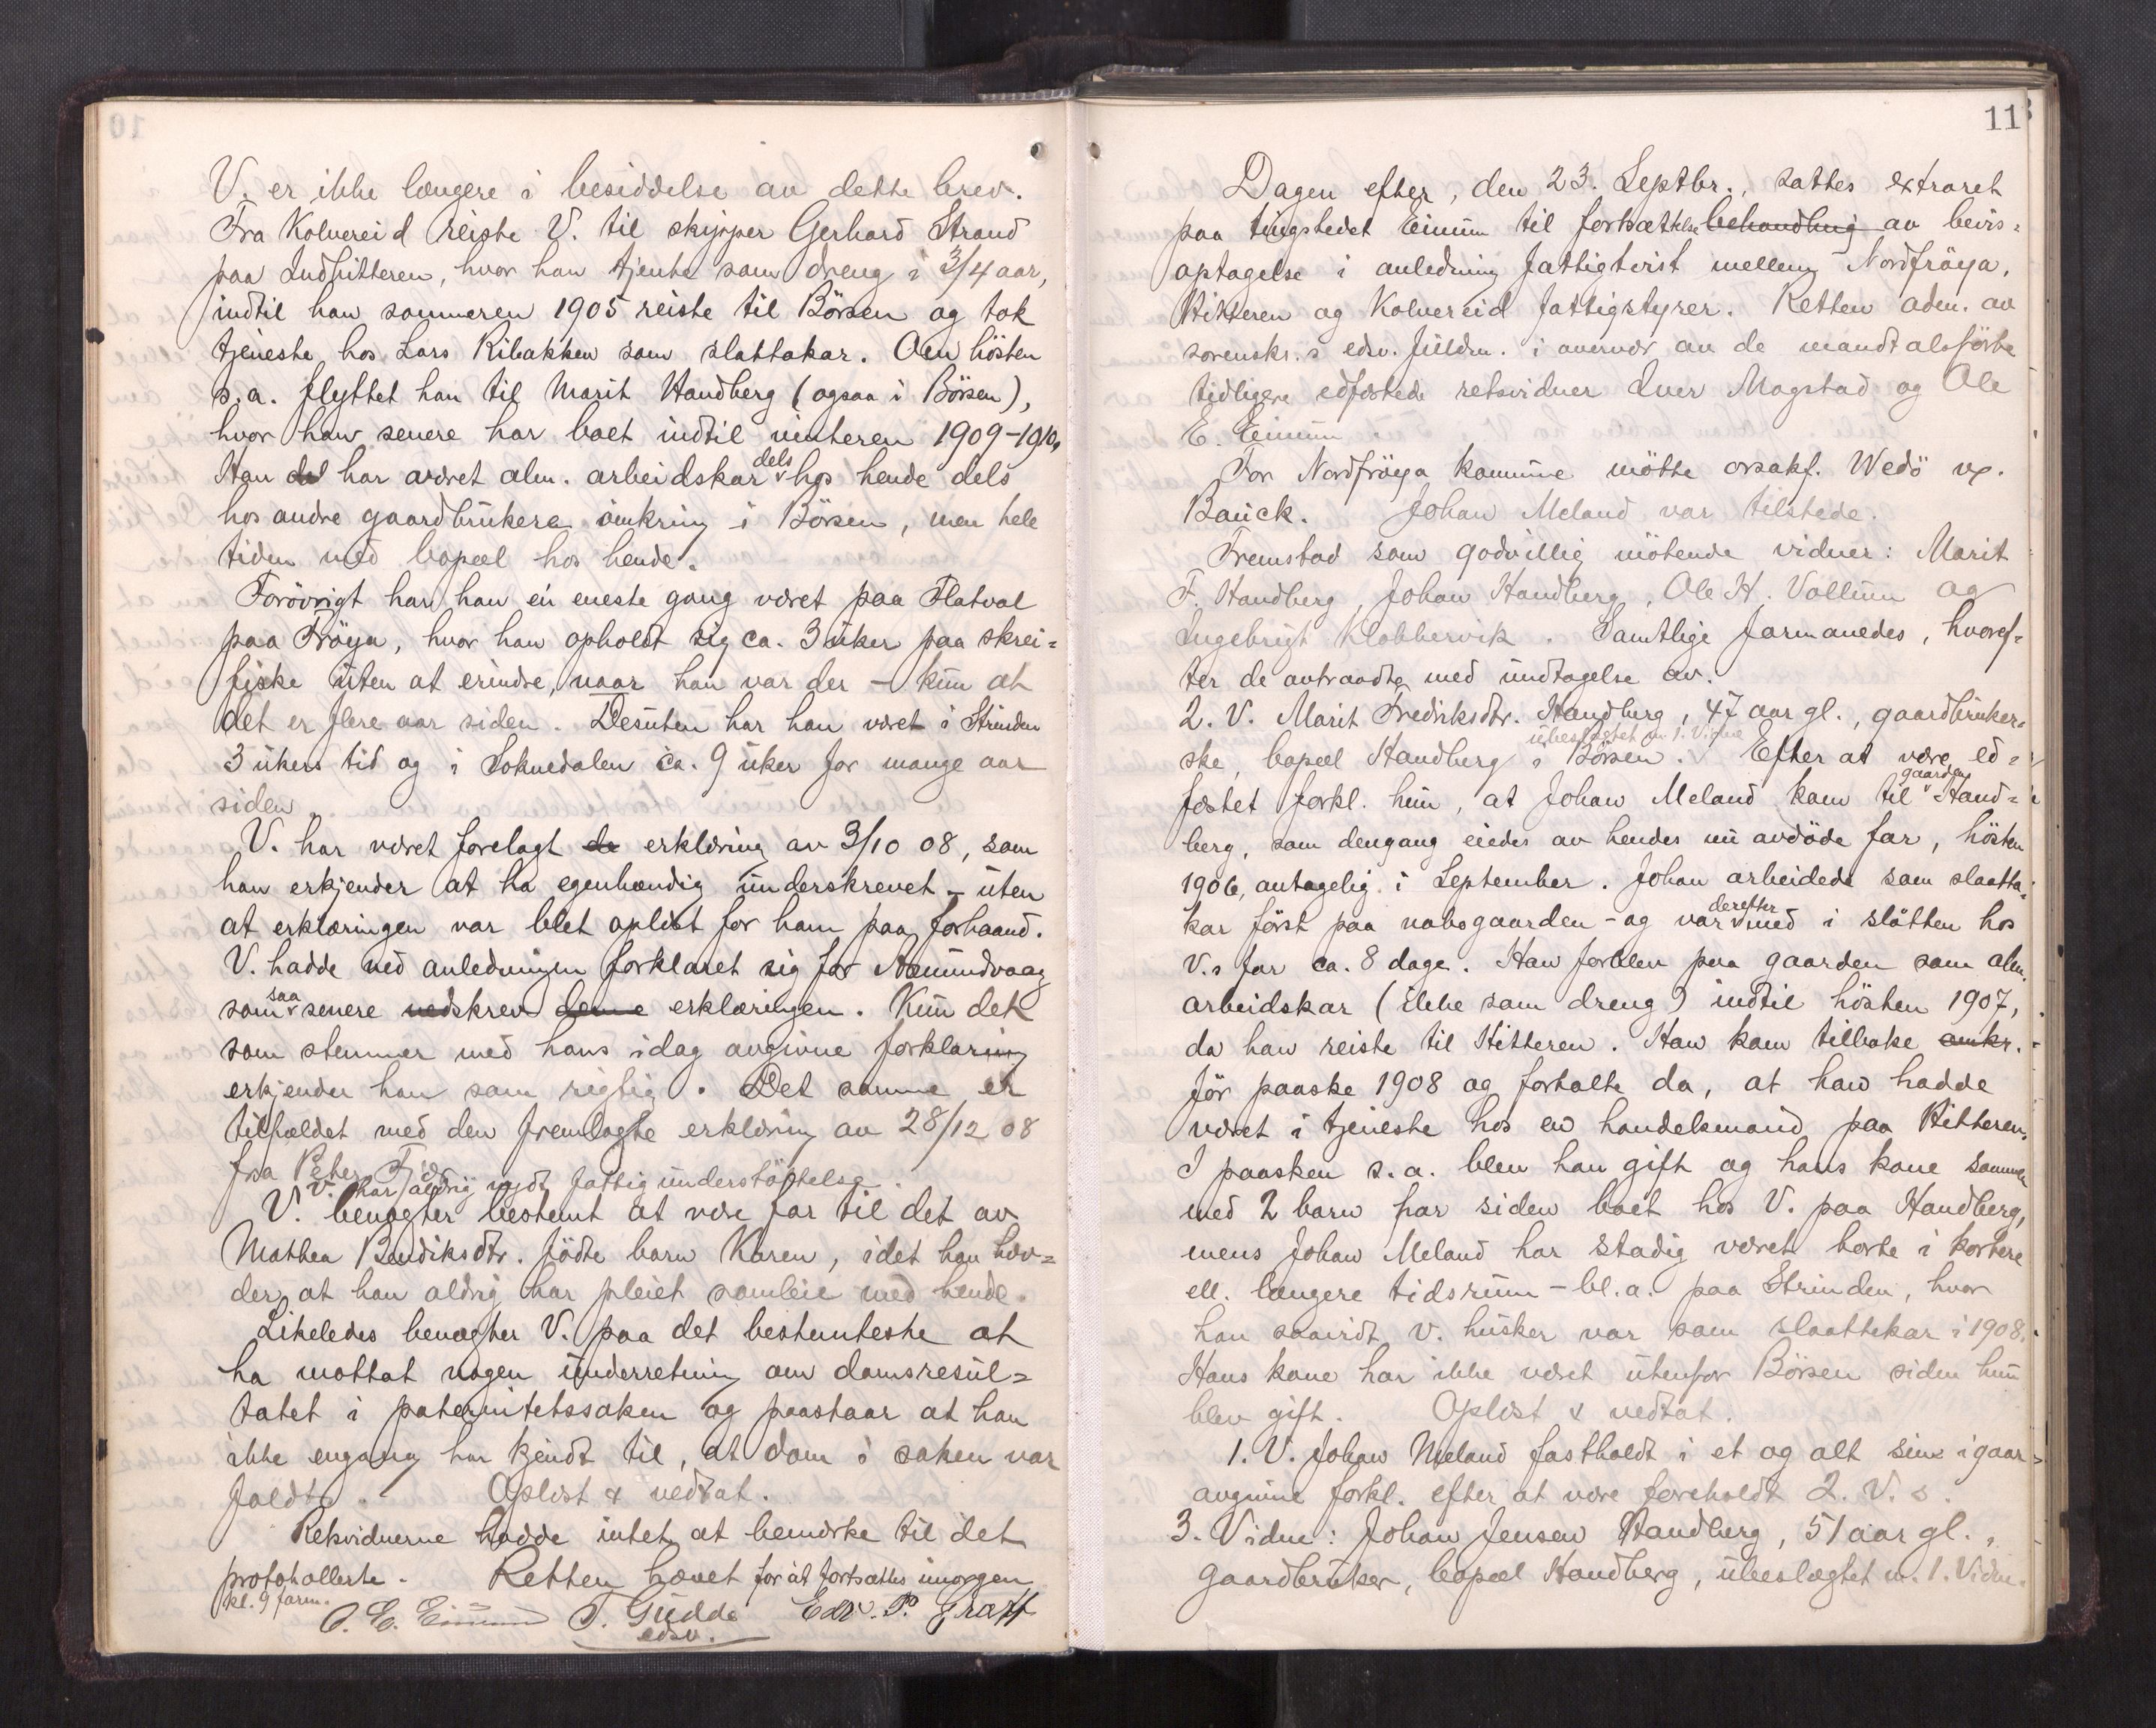 V. er ikke længere i besiddelse av dette brev.
Fra Kolvereid reiste V. til skipper Gerhard Strand
paa Indhitteren, hvor han tjente som dreng i 3/4 aar,
indtil han sommeren 1905 reiste til Börsen og tok
tjeneste hos Lars Ribakken som slattakar. Om hösten
s.a. flyttet han til Marit Handberg (ogsaa i Börsen),
hvor han senere har boet indtil vinteren 1909-1910.
Han har været alm. arbeidskar dels hos hende dels
hos andre gaardbrukere omkring i Börsen, men hele
tiden med bopæl hos hende.
Forövrigt har han én eneste gang været paa Flatval
paa Fröya, hvor han opholdt sig ca. 3 uker paa skrei=
fiske uten at erindre, naar han var der - kun at
det er flere aar siden. Desuten har han været i Strinden
3 ukers tid og i Soknedalen ca. 9 uker for mange aar
siden.
V. har været forelagt de erklæring av 3/10 08, som
han erkjender at ha egenhændig underskrevet - uten
at erklæringen var blet oplæst for ham paa forhaand.
V. hadde ved anledningen forklaret sig for Aamundvaag
som saa senere nedskrev denne erklæringen. Kun det
som stemmer med hans idag avgivne forklaring
erkjender han som rigtig. Det samme er
tilfældet med den fremlagte erklæring av 28/12 08
fra Peter
V. har aldrig nydt fattigunderstöttelse.
V. benægter bestemt at være far til det av
Mathea Bendiksdtr. födte barn Karen, idet han hæv=
der, at han aldrig har pleiet samleie med hende.
Likeledes benægter V. paa det bestemteste at
ha mottat nogen underretning om domsresul=
tatet i paternitetssaken og paastaar at han
ikke engang har kjendt til, at dom i saken var
faldt. Oplæst & vedtat.
Retsvidnerne hadde intet at bemerke til det
protokollerte. Retten hævet for at fortsættes imorgen
kl. 9 form.
O. E. Eimum T. Gudde Edv. P.
edsv.
11
Dagen efter, den 23. Septbr., sattes extraret
paa tingstedet Eimum til fortsættelse behandling av bevis=
optagelse i anledning fattigtvist mellem Nordfröya,
Hitteren og Kolvereid fattigstyrer. Retten adm. av
sorenskr.s edsv. fuldm. i overvær av de mandtalsförte
tidligere edfæstede retsvidner Iver Mogstad og Ole
E. Eimum.
For Nordfröya kommune mötte orsakf. Wedö
Bauck. Johan Meland var tilstede.
Fremstod som godvillig mötende vidner: Marit
F. Handberg, Johan Handberg, Ole H. Vollum og
Ingebrigt Klobbervik. Samtlige formanedes, hvoref=
ter de avtraadte med undtagelse av.
2. V. Marit Fredriksdtr. Handberg, 47 aar gl., gaardbruker=
ubeslægtet m 1. Vidne
ske, bopæl Handberg i Börsen. Efter at være ed=
fæstet forkl. hun, at Johan Meland kom til gaarden Hand=
berg, som dengang eiedes av hendes nu avdöde far, hösten
1906, antagelig i September. Johan arbeidede som slaatta=
kar först paa nabogaarden - og var derefter med i slåtten hos
V.s far ca. 8 dage. Han forblev paa gaarden som alm.
arbeidskar (ikke som dreng) indtil hösten 1907,
da han reiste til Hitteren. Han kom tilbake omkr.
för paaske 1908 og fortalte da, at han hadde
været i tjeneste hos en handelsmand paa Hitteren.
I paasken s.a. blev han gift og hans kone sammen
med 2 barn har siden boet hos V. paa Handberg,
mens Johan Meland har stadig været borte i kortere
ell. længere tidsrum - bl.a. paa Strinden, hvor
han saavidt V. husker var som slaattekar i 1908.
Hans kone har ikke været utenfor Börsen siden hun
blev gift. Oplæst & vedtat.
1. V. Johan Meland fastholdt i et og alt sin igaar
avgivne forkl. efter at være foreholdt 2. V.s.
3. Vidne: Johan Jensen Handberg, 51 aar gl.,
gaardbruker, bopæl Handberg, ubeslægtet m. 1. Vidne.